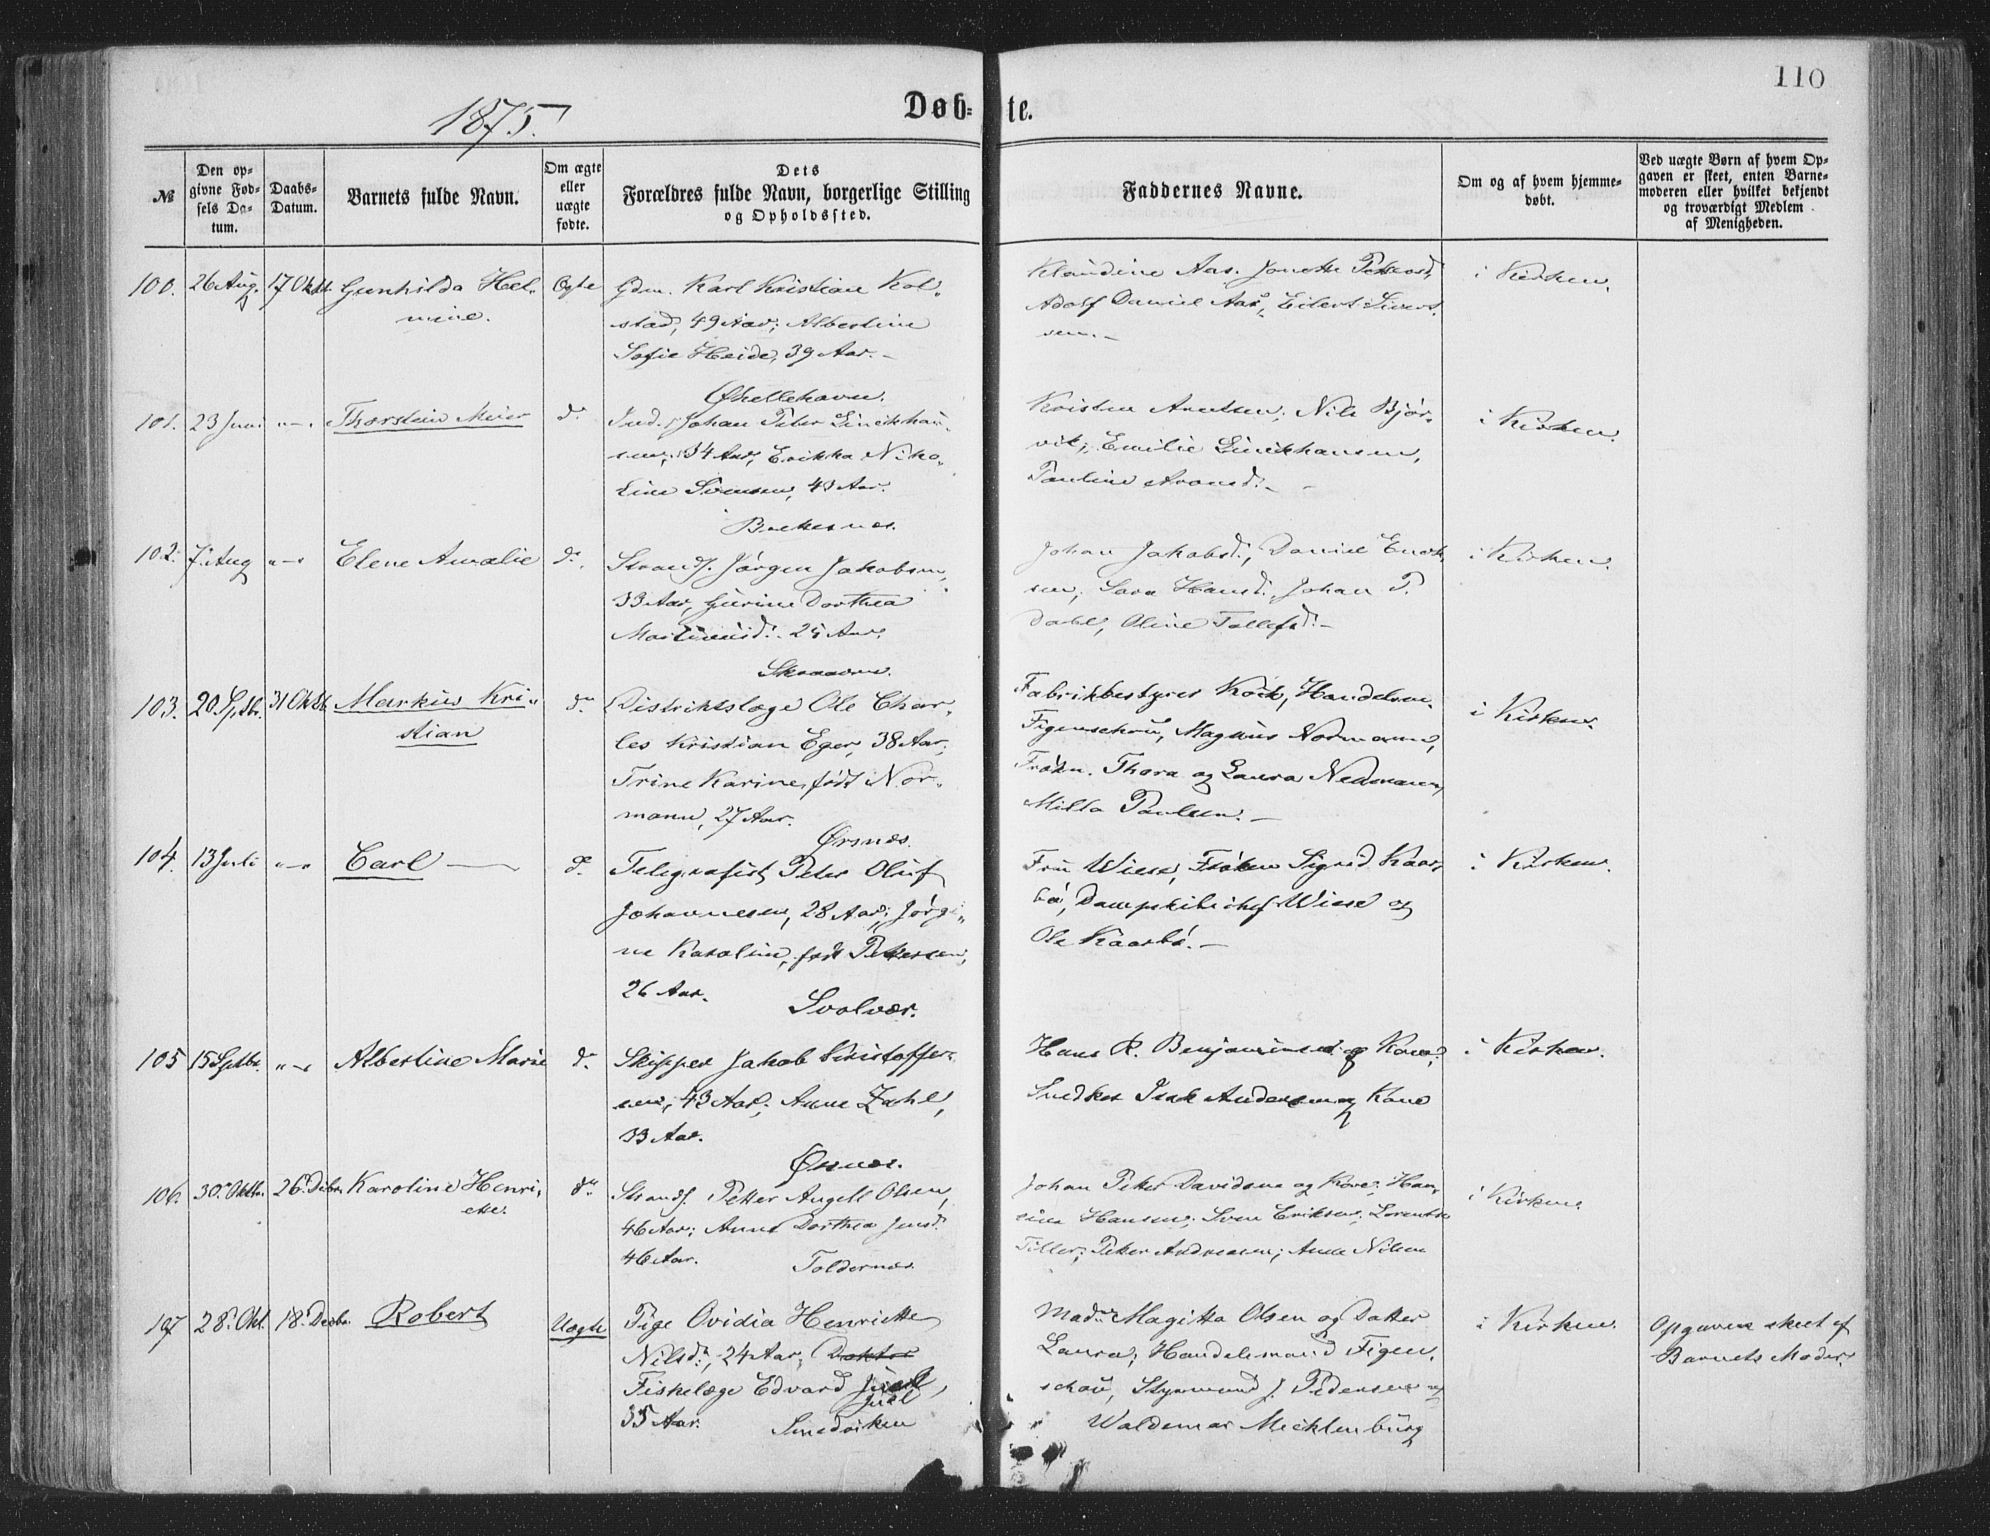 110
1875.
Døb-te.
№
Den op-
givne Fød-
sels Da-
tum.
Daabs-
Datum.
Barnets fulde Navn.
Om ægte
eller
uægte
fødte.
Dets
Forældres fulde Navn, borgerlige Stilling
og Opholdssted.
Faddernes Navne.
Om og af hvem hjemme-
døbt.
Ved uægte Børn af hvem Op-
gaven er skeet, enten Barne-
moderen eller hvilket bekjendt
og troværdigt Medlem
af Menigheden.
100. 26 Aug. 17 Oktb. Gunhilda Hel-
mine.
Ægte
Gdm. Karl Kristian Kol-
stad, 49 Aar; Albertine
Sofie Heide, 39 Aar.-
Klaudine Aas.
Adolf Daniel Aas, Eilert Sivert-
sen.-
i Kirken.
101. 23 Juni "-" Thorstein Meier do
Ind. Johan Peter Linikhau-
sen, 34 Aar, Erikka Niko-
line Svensen, 40 Aar.
Kristen Arntsen, Nils Bjør-
vik, Emilie Linikhausen,
Pauline
i Kirken.
102. 7 Aug "-" Elene Amalie do.
Strands. Jørgen Jakobsen,
33 Aar, Gurine Dorthea
25 Aar.
Skraaven.
Johan Jakobsd., Daniel
sen, Sara Hansd., Johan P.
Dahl, Oline Tollefsd.-
i Kirken.
103. 20 Sptbr. 31 Oktb. Markus Kri-
stian
do
Distriktslæge Ole Char-
les Kristian Eger, 38 Aar;
Trine Karine, født Nor-
mann, 27 Aar.
Ørsnæs.
Fabrikbestyrer Koch, Handelsm.
Figenschou, Magnus Normann,
Frøkn. Thora og Laura Normann,
Milla Paulsen.-
i Kirken.
104. 13 Juli "-" Carl do
Telegrafist Peter Oluf
Johannesen, 28 Aar; Jørgi-
ne Karoline, født Pettersen,
26 Aar.
Svolvær.
Fru Wiese, Frøken Sigrid Kaar-
bø, Dampskibschef Wiese og
Ole Kaarbø.-
i Kirken.
105 15 Sptbr. "-" Albertine Marie do
Skipper Jakob Kristoffer-
sen, 43 Aar; Anne Zahl,
33 Aar.
Ørsnæs.
Hans R. Benjaminsen og Kone,
Snedker Isak Andersen og Kone
i Kirken.
106. 30. Oktbr. 26. Debr. Karoline Henri-
ette.
do
Strands. Petter Angell Olsen,
46 Aar; Anne Dorthea Jensd.
46 Aar.
Toldernæs.
Johan Peter Davidsen og Kone, Han-
sine Hansen, Sven Eriksen, Lorentse
Tiller; Peter Andreasen; Anne Nilsen
i Kirken.
107 28. Okt. 18. Decbr. Robert Uægte
Pige Ovidia Henriette
Nilsd., 24 Aar;
Fiskelæge Edvard
Juel
35 Aar.
Smedviken
Madm. Magitta Olsen og Datter
Laura; Handelsmand Figen-
schou, Styrmand J. Pedersen og
Waldemar Mecklenburg
i Kirken.
Opgaven skeet af
Barnets Moder.